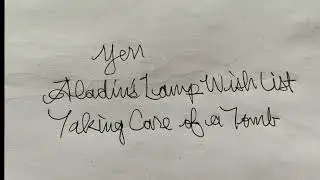 Yen
Aladin's Lamp Wish List
Taking Care of a Tomb